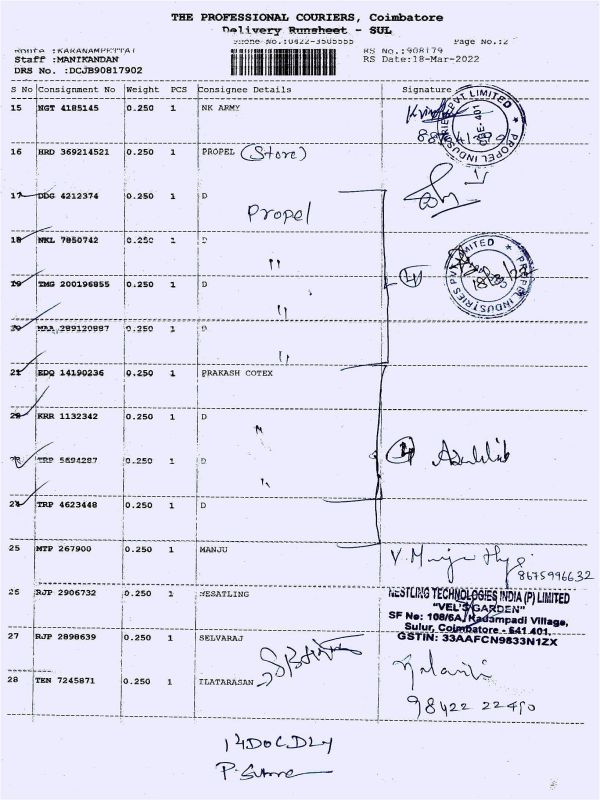 THE PROFESSIONAL COURIERS, Coimbatore
Delivery Runsheet - SUL
Phone No.:0422-3505555 Page No.:2
Route :KARANAMPETTAI RS No.:908179
Staff :MANIKANDAN RS Date:18-Mar-2022
DRS No. :DCJB90817902
S No Consignment No Weight PCS Consignee Details Signature
15 NGT 4185145 0.250 1 NK ARMY
PROPEL INDUSTRIES PVT LIMITED
16 HRD 369214521 0.250 1 PROPEL (Store)
17 DDG 4212374 0.250 1 D
Propel
18 NKL 7850742 0.250 1 D
"
PROPEL INDUSTRIES PVT LIMITED
19 TMG 200196855 0.250 1 D
"
20 MAA 289120887 0.250 1 D
"
21 EDQ 14190236 0.250 1 PRAKASH COTEX
22 KRR 1132342 0.250 1 D
"
23 TRP 5694287 0.250 1 D
"
24 TRP 4623448 0.250 1 D
25 MTP 267900 0.250 1 MANJU
8675996632
26 RJP 2906732 0.250 1 NESATLING
NESTLING TECHNOLOGIES INDIA (P) LIMITED
"VEL'S GARDEN"
SF No: 108/5A, Kadampadi Village,
Sulur, Coimbatore - 641 401.
GSTIN: 33AAFCN9833N1ZX
27 RJP 2898639 0.250 1 SELVARAJ
28 TEN 7245871 0.250 1 ILATARASAN
98422 22490
14DOC DLY